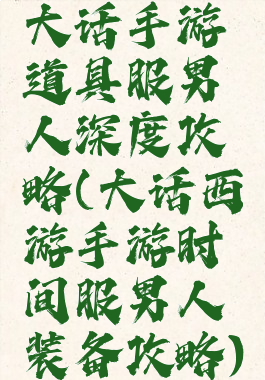 大话手游
道具服男
人深度攻
略(大话西
游手游时
间服男人
装备攻略)